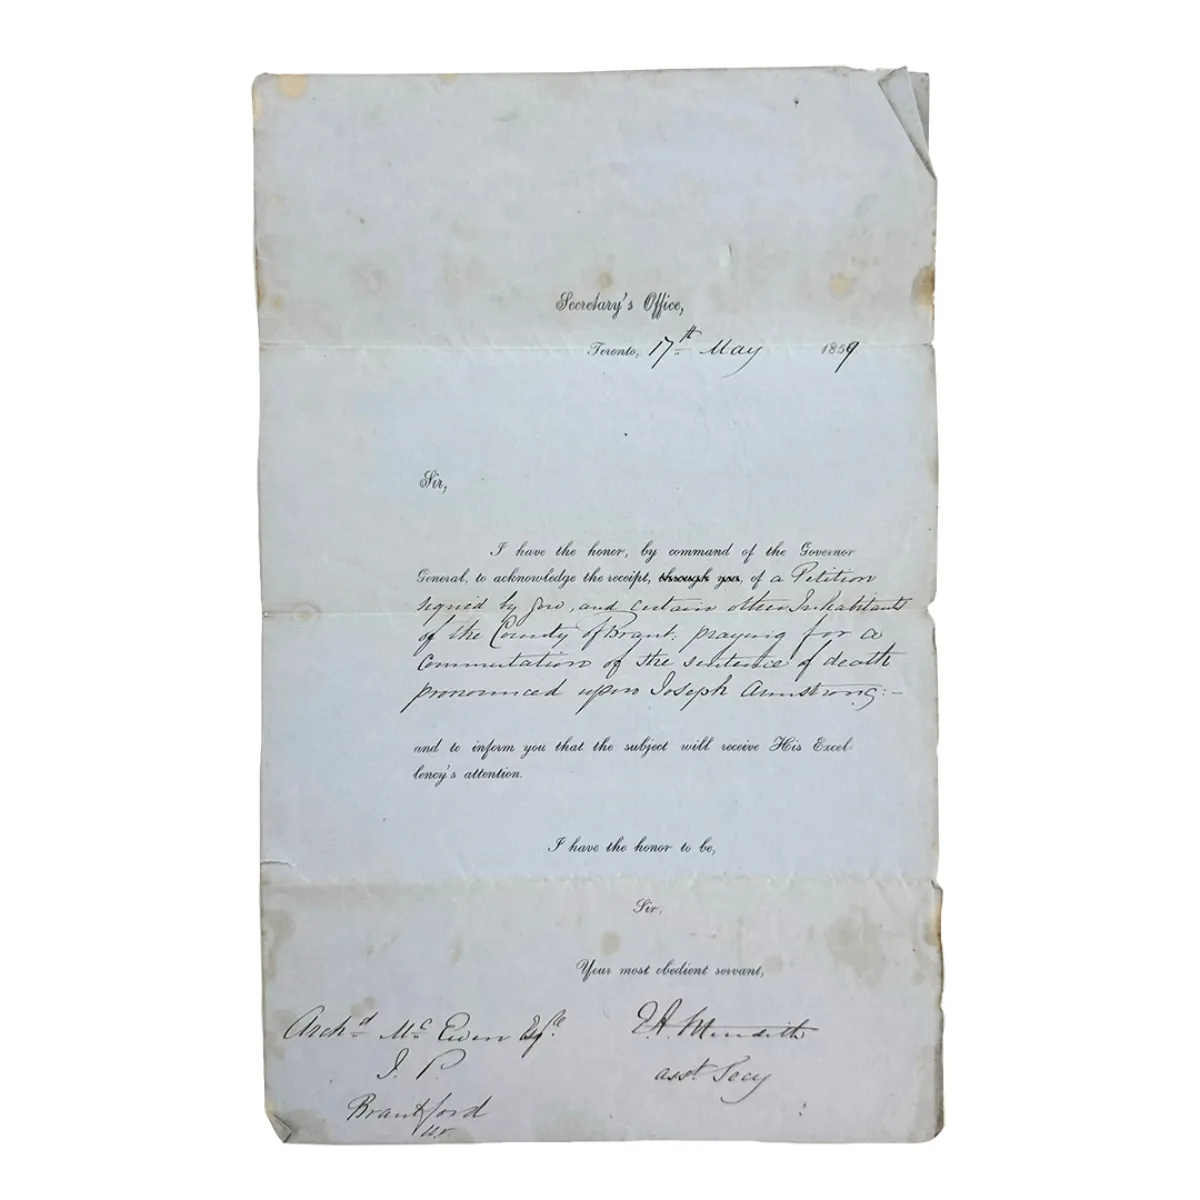 Secretary's Office,
Toronto, 17th May 1859
Sir,
I have the honor, by command of the Governor
General, to acknowledge the receipt, through you, of a Petition
signed by you, and certain other Inhabitants
of the County of Brant: praying for a
Commutation of the sentence of death
pronounced upon Joseph Armstrong:—
and to inform you that the subject will receive His Excel-
lency's attention.
I have the honor to be,
Sir,
Your most obedient servant,
E.A. Meredith
asst Secy
Archd McEwen Esqre
J. P.
Brantford